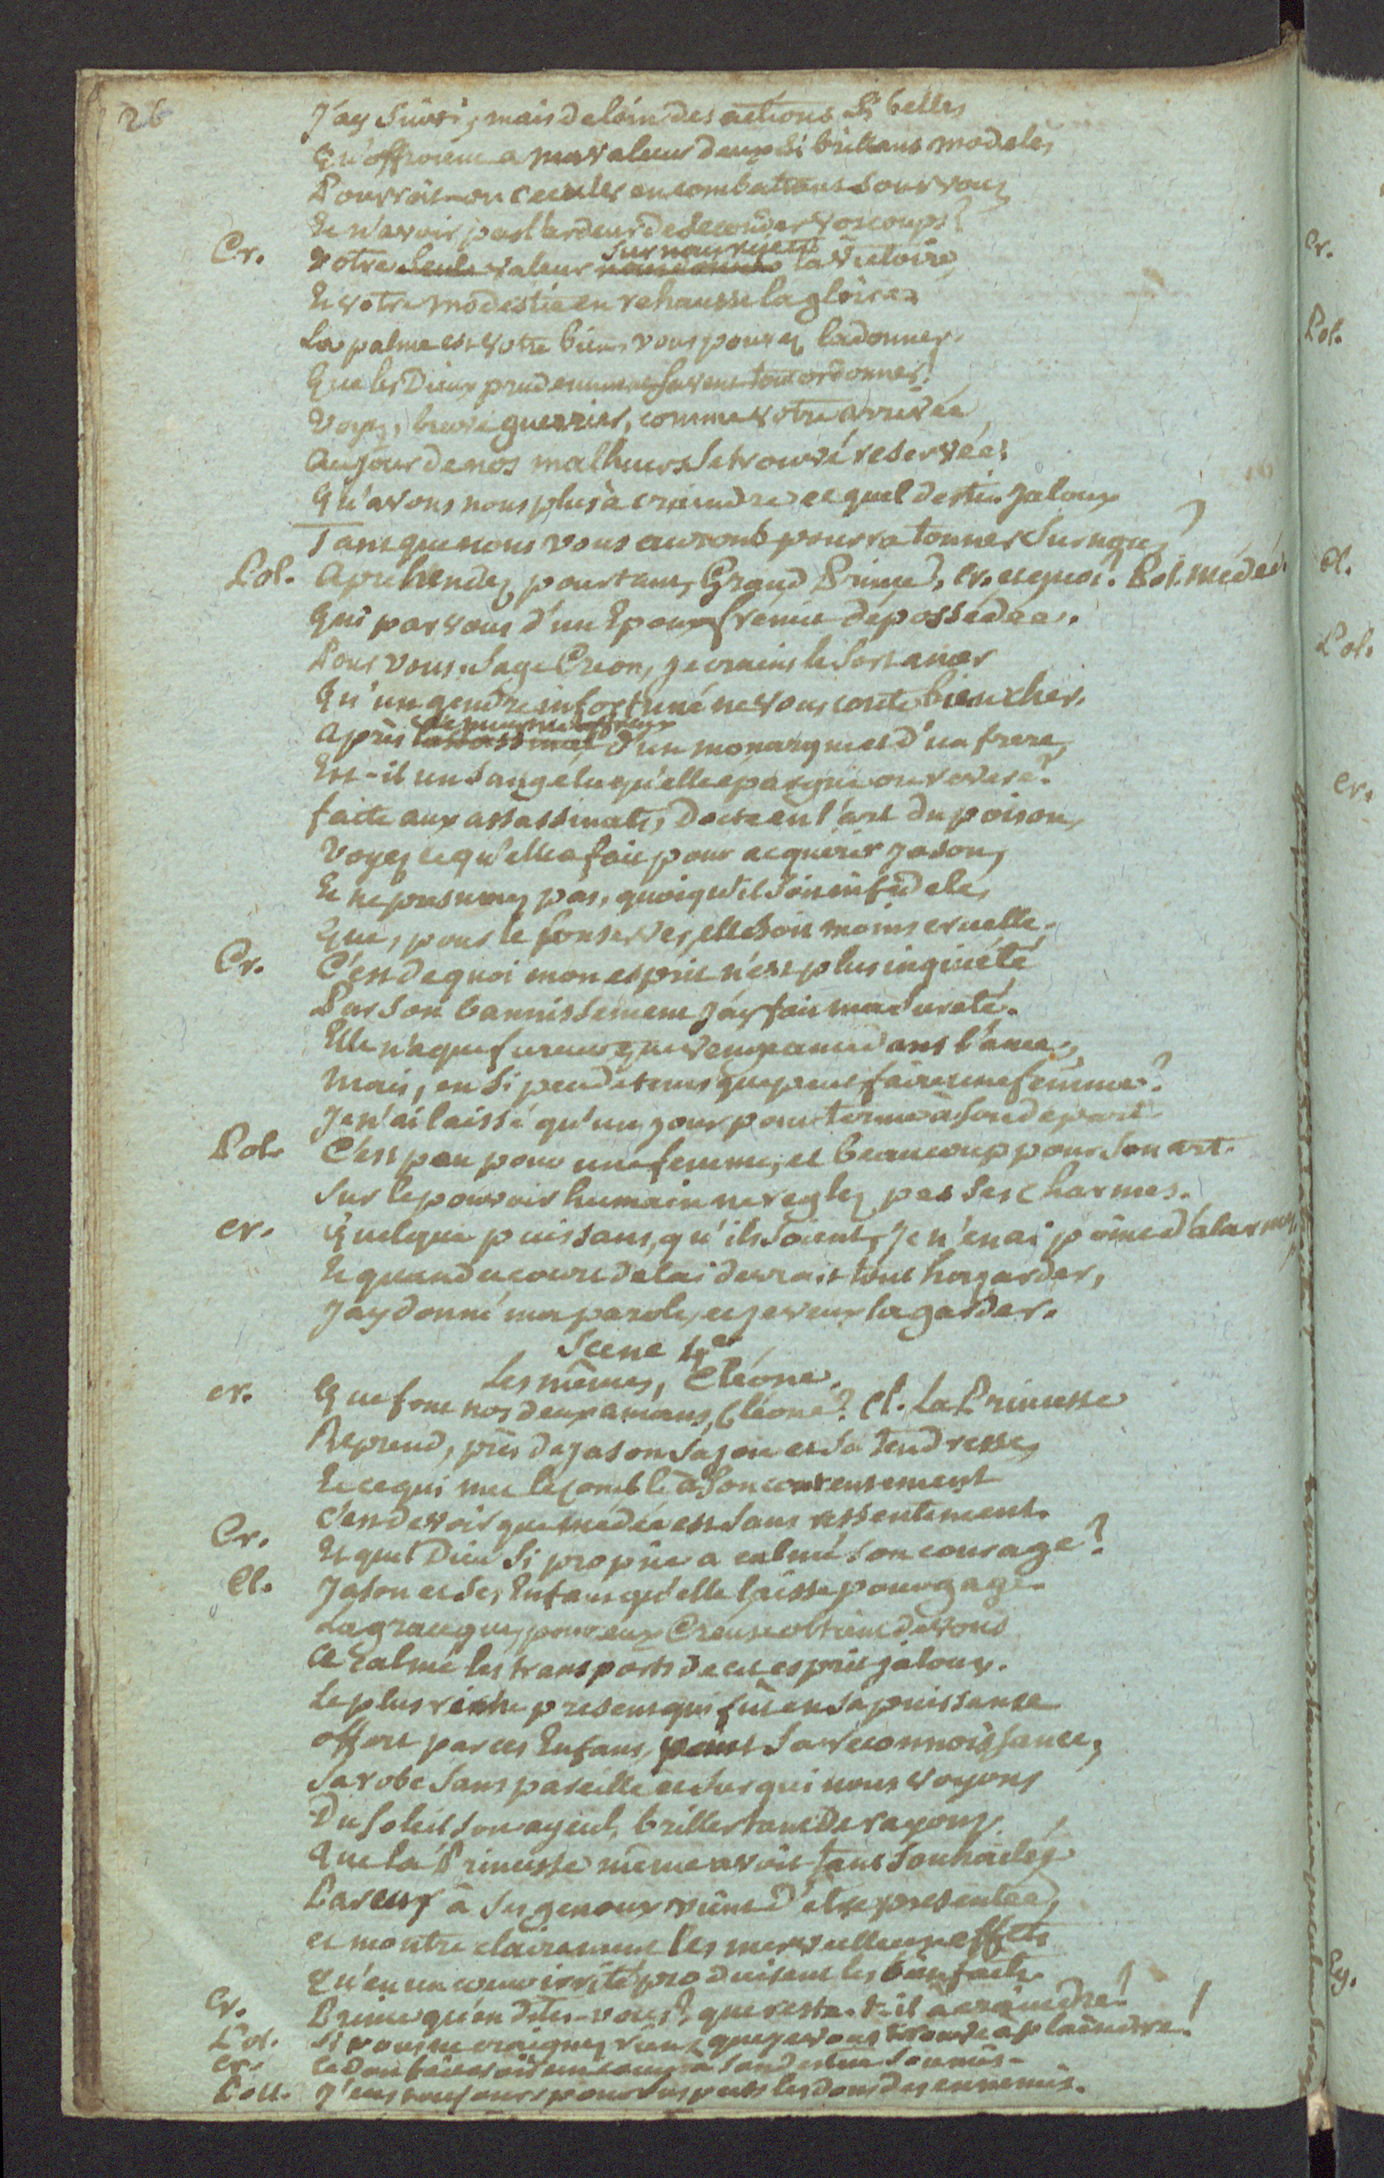 26
J'ay suivi, mais de loin des actions si belles
Qu'offroient a ma valeur deux si brillans modeles
Pourroit-on ceder en combattant sous vous
Et n'avoir pas l'ardeur de seconder vos coups?
Cr. Votre seule valeur sur nous la victoire
Et votre modestie en rehausse la gloire.
La palme est votre bien, vous pouvez la donner.
Que les Dieux prudemment savent tout ordonner!
Voyez, brave guerrier, comme votre arrivée
Au jour de nos malheurs se trouve reservée!
Qu'avons nous plus à craindre et quel destin jaloux
Tant que nous vous aurons pourra tonner sur nous?
Pol. Aprehendez pourtant, Grand Prince, Cr. et quoi? Pol. Médée
Qui par vous d'un Epoux fremit dépossédée.
Pour vous, sage Créon, je crains le sort amer
Qu'un gendre infortuné ne vous coute bien cher.
Après l'assassinat d'un monarque et d'un frere,
Est-il un sang élu qu'elle epargne ou revere?
faite aux assassinats, Docte en l'art du poison,
Voyez ce qu'elle a fait pour acquérir Jason,
Et ne presumez pas, quoiqu'il soit infidele,
Que, pour le conserver, elle soit moins cruelle.
Cr. C'est de quoi mon esprit n'est plus inquiété
Par son bannissement j'ay fait ma sureté.
Elle n'a que fureur que vengeance dans l'ame,
Mais, en si peu de tems que peut faire une femme?
Je n'ai laissé qu'un jour pour terme à son départ.
Pol. C'est peu pour une femme, et beaucoup pour son art.
Sur le pouvoir humain ne reglez pas ses charmes.
Cr. Quelque puissans, qu'ils soient, je n'en ai point d'alarmes,
Et quand ce court delai devrait tout hazarder,
J'ay donné ma parole, et je veux la garder.
Scene 4e
Les mêmes, Cléone.
Cr. Que font nos deux amans, Cléone? Cl. La Princesse
Reprend, près de Jason sa joie et sa tendresse,
Et ce qui met le comble à son contentement
C'est de voir que médée est sans ressentiment.
Cr. Et quel Dieu si propice a calmé son courage?
Cl. Jason et ses Enfans qu'elle laisse pour gage.
La grace que pour eux Creuse obtient de vous
A calmé les transports de cet esprit jaloux.
Le plus riche present qui fut en sa puissance
Offert par ces Enfans, peint sa reconnoissance,
Sa robe sans pareille et sur qui nous voyons
Du soleil son ayeul, briller tant de rayons
Que la Princesse même avoit tant souhaitée
Par eux à ses genoux vient d'etre presentée,
et montre clairement les merveilleux effets
Qu'en un coeur irrité produisent les bienfaits.
Cr. Prince qu'en dites-vous? que reste-t-il à craindre!
Pol. Si vous ne craignez rien, que je vous trouve à plaindre!
Cr.
Poll. J'eus toujours pour suspects les dons des ennemis.
Cr.
Pol.
Cl.
Pol.
Cr.